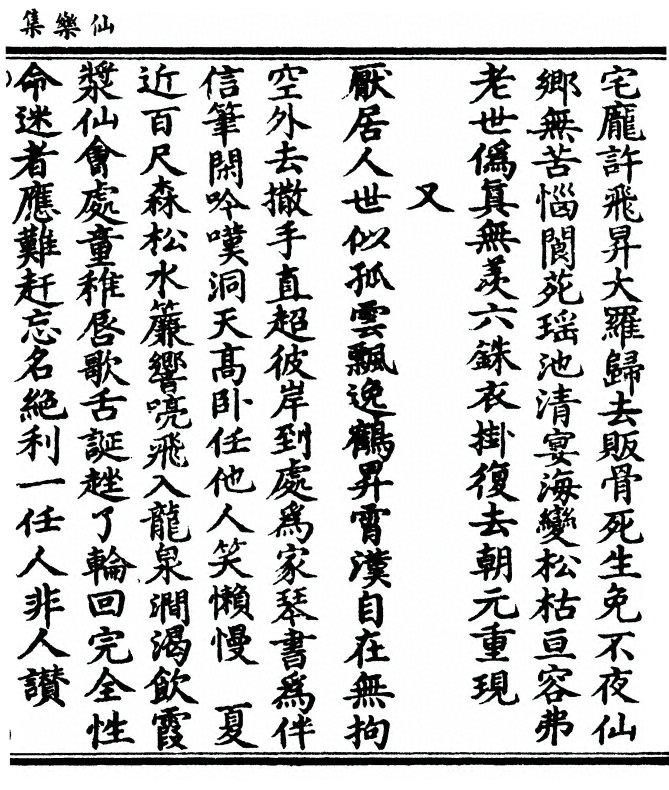 仙樂集
宅龐許飛昇大羅歸去販骨死生免不夜仙
鄉無苦惱閬苑瑶池清宴海變松枯亘容弗
老世僞眞無羨六銖衣掛復去朝元重現
又
厭居人世似孤雲飄逸鶴昇霄漢自在無拘
空外去撒手直超彼岸到處爲家琴書爲伴
信筆閑吟嘆洞天高卧任他人笑懶慢　夏
近百尺森松水簾響喨飛入龍泉澗渴飲霞
漿仙會處童稚唇歌舌誕趖了輪回完全性
命迷者應難赶忘名絕利一任人非人讃